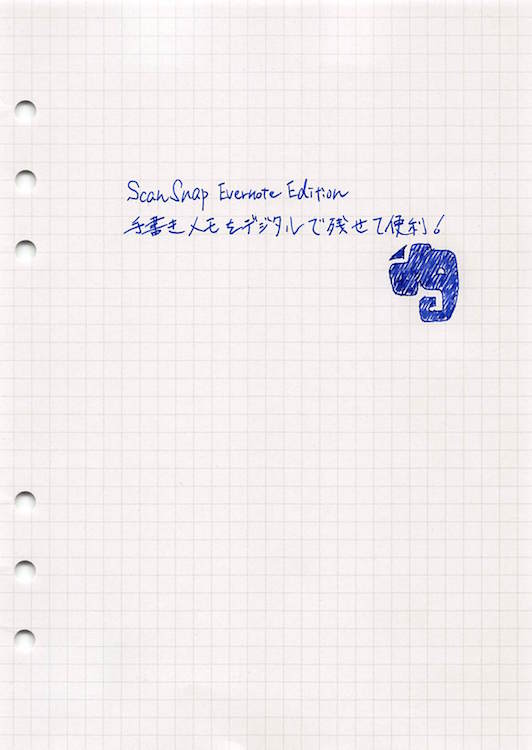 ScanSnap Evernote Edition
手書きメモをデジタルで残せて便利!